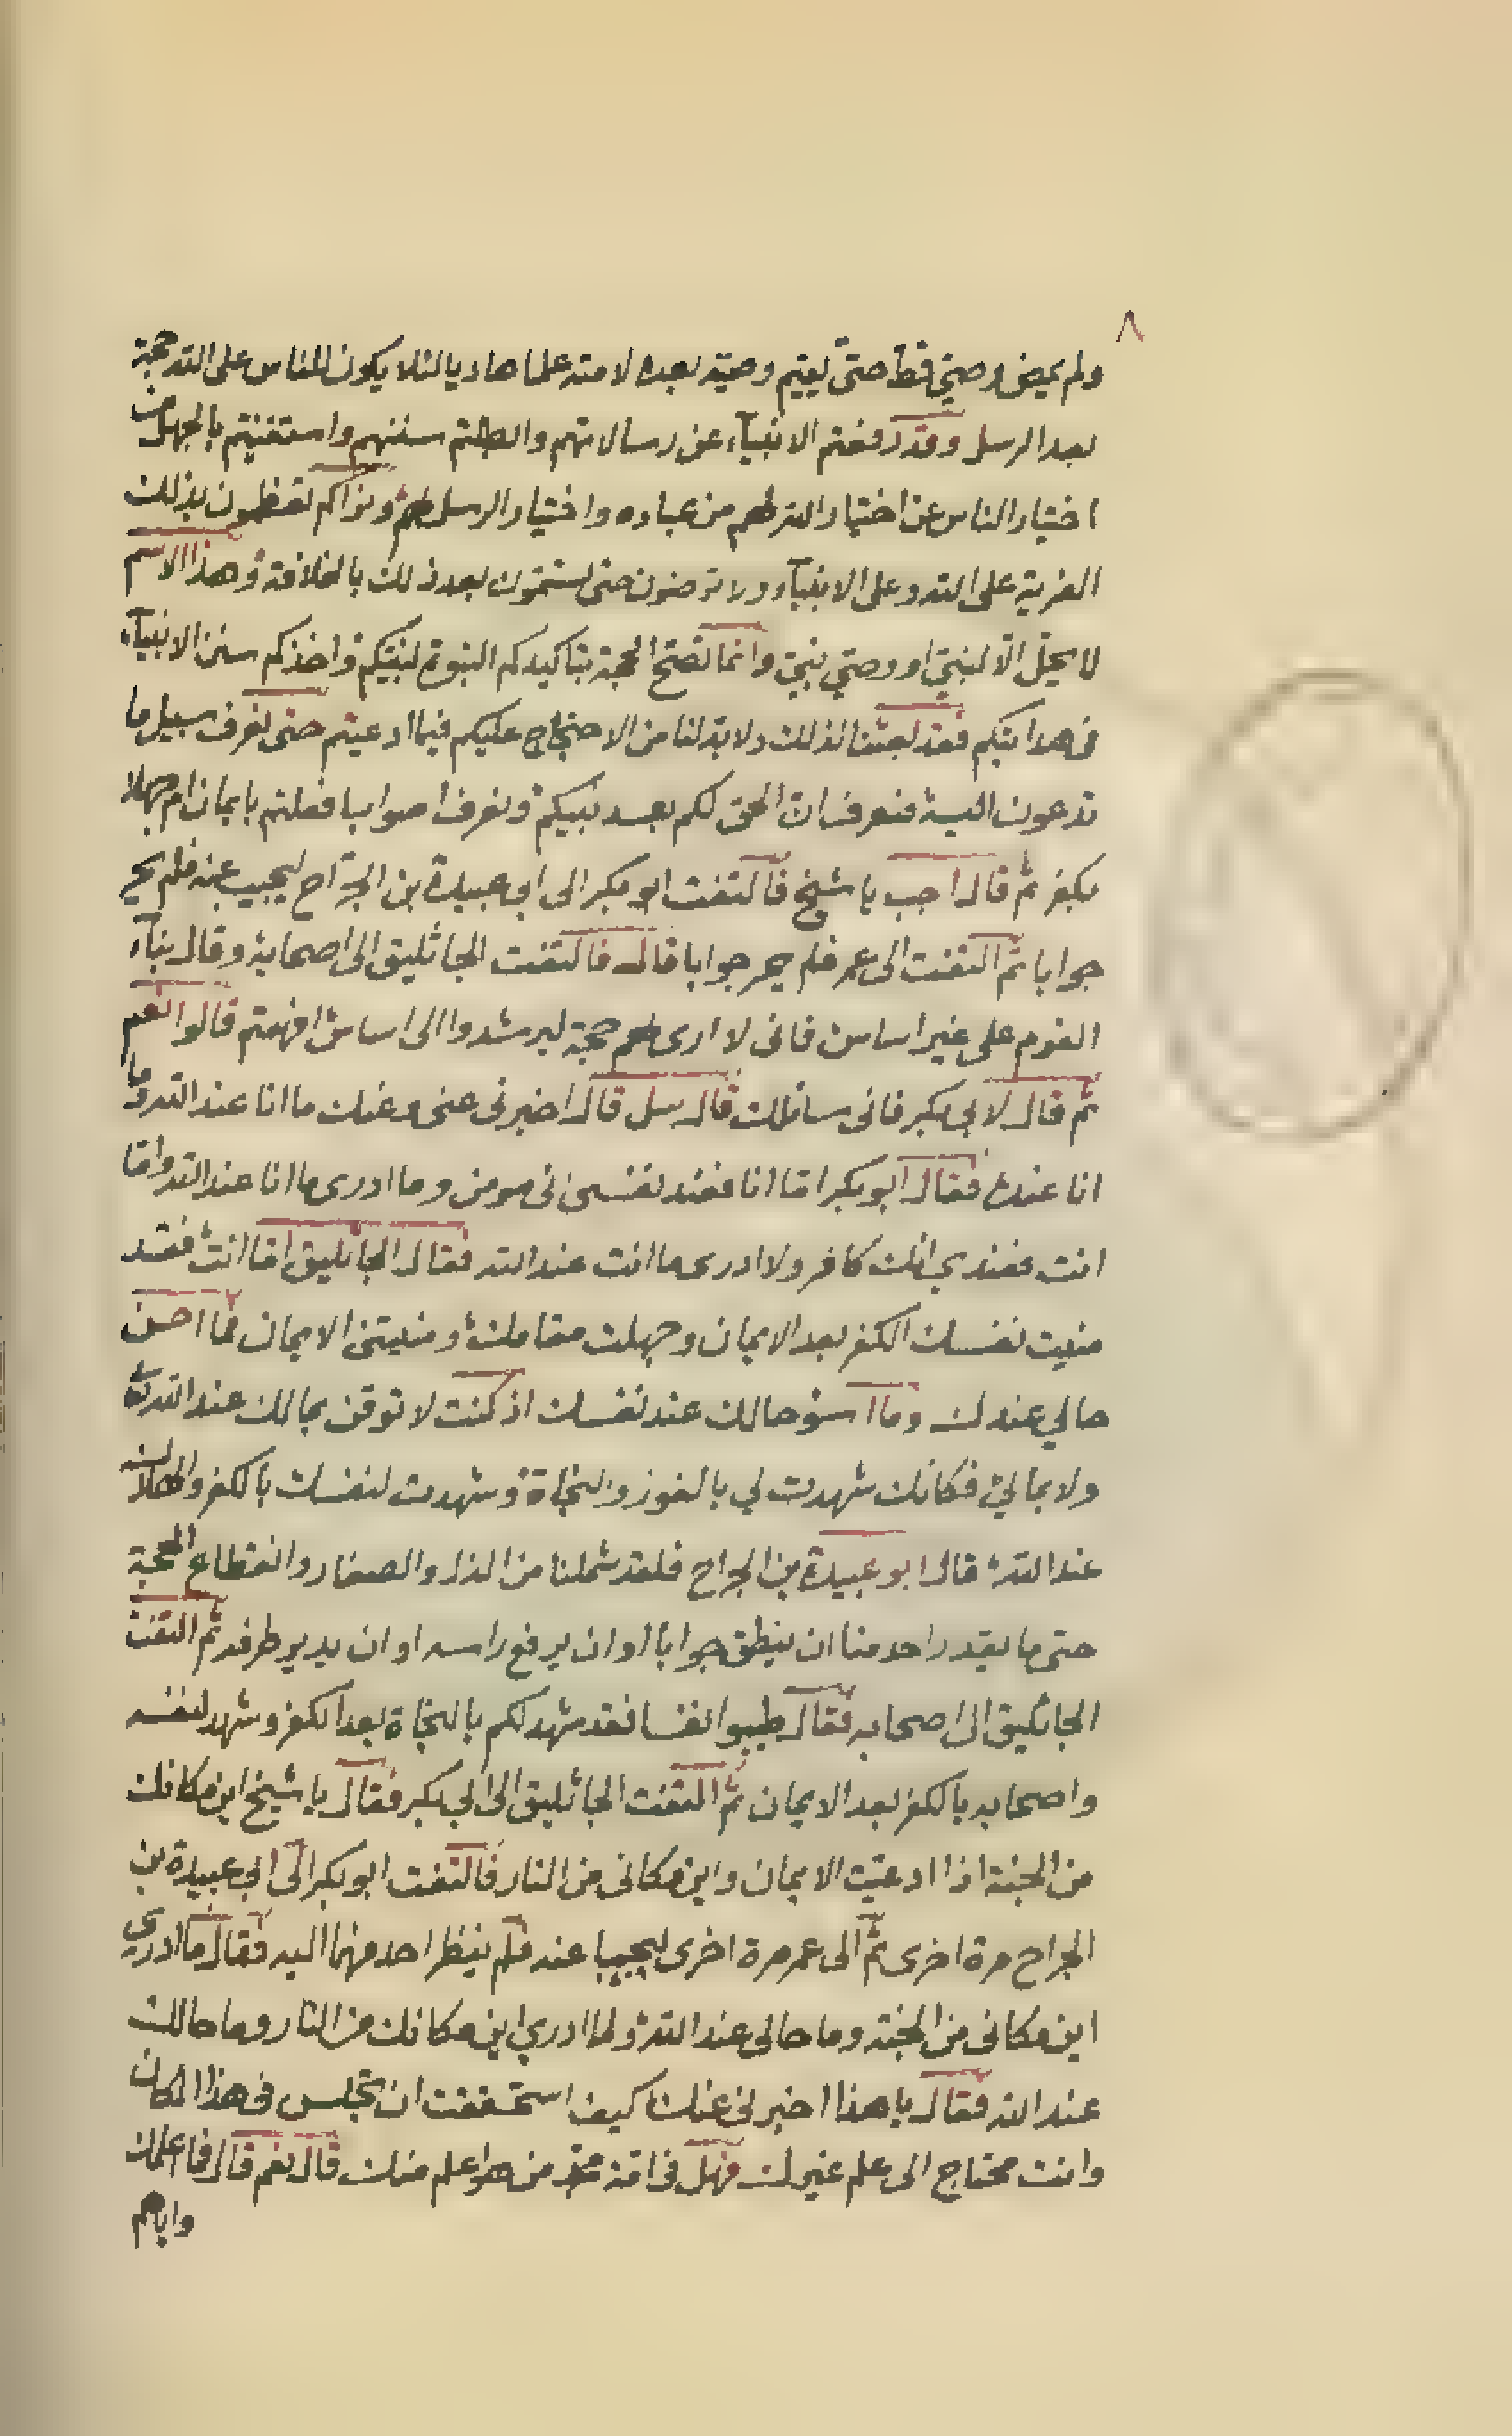 ٨
ولم يمض وصي قط حتى يقيم وصية بعده لامته علما هاديا لئلا يكون للناس على الله حجة
بعد الرسل وقد دفعتم الانبيآء عن رسالاتهم وابطلتم سننهم واستغنيتم بالجهل من
اختيار الناس عن اختيار الله لهم من عباده واختيار الرسل لهم ونراكم تعظمون بذلك
الفرية على الله وعلى الانبيآء ولا ترضون حتى تسمون بعد ذلك بالخلافة وهذا الاسم
لا يحل الا لنبي او وصي نبي وانما تصح الحجة بتاكيدكم النبوة لنبيكم واخذكم سنن الانبيآء
في هداتكم فقد بعثنا لذلك ولا بد لنا من الاحتجاج عليكم فيما ادعيتم حتى نعرف سبيل ما
تدعون اليه فنعرف ان الحق لكم بعد نبيكم ونعرف اصوابا فعلتم بايمان ام جهلا
بكفر ثم قال اجب يا شيخ فالتفت ابو بكر الى ابي عبيدة بن الجراح ليجيب عنه فلم يحر
جوابا ثم التفت الى عمر فلم يحر جوابا قال فالتفت الجاثليق الى اصحابه وقال بنآء
القوم على غير اساس فاني لا ارى لهم حجة ليرشدوا الى اساس افهمتم قالوا نعم
ثم قال لابي بكر فاني سائلك قال سل قال اخبرني عني وعنك ما انا عند الله وما
انا عندك فقال ابو بكر اما انا فعند نفسي اني مومن وما ادري ما انا عند الله واما
انت فعندي انك كافر ولا ادري ما انت عند الله فقال الجاثليق اما انت فقد
منيت نفسك الكفر بعد الايمان وجهلت مقامك ومنيتني الايمان فما احسن
حالي عندك وما اسوء حالك عند نفسك اذ كنت لا توقن بمالك عند الله
ولا بمالي فكانك شهدت لي بالفوز والنجاة وشهدت لنفسك بالكفر والهلاك
عند الله قال ابو عبيدة بن الجراح فلقد شملنا من الذل والصغار وانقطاع الحجة
حتى ما يقدر احد منا ان ينطق جوابا او ان يرفع راسه او ان يدير طرفه ثم التفت
الجاثليق الى اصحابه فقال طيبوا نفسا فقد شهد لكم بالنجاة بعد الكفر وشهد لنفسه
واصحابه بالكفر بعد الايمان ثم التفت الجاثليق الى ابي بكر فقال يا شيخ اين مكانك
من الجنة اذا ادعيت الايمان واين مكاني من النار فالتفت ابو بكر الى ابي عبيدة بن
الجراح مرة اخرى ثم الى عمر مرة اخرى ليجيبا عنه فلم ينظر احد منهما اليه فقال ما ادري
اين مكاني من الجنة وما حالي عند الله ولما ادري اين مكانك من النار وما حالك
عند الله فقال يا هذا اخبرني عنك كيف استحققت ان تجلس في هذا المكان
وانت محتاج الى علم غيرك فهل في امة محمد من هو اعلم منك قال نعم قال فما اعلمك
واياهم